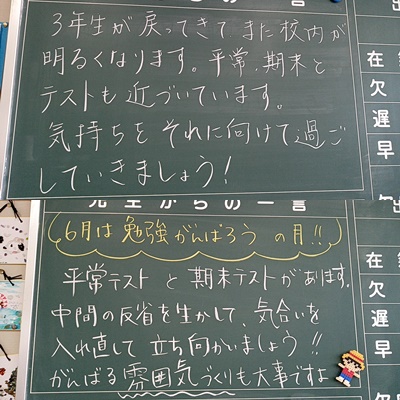 3年生が戻ってきてまた校内が
明るくなります。平常、期末と
テストも近づいています。
気持ちをそれに向けて過ご
していきましょう!
在
欠
遅
早
先生からの一言
6月は勉強がんばろうの月!!
平常テストと期末テストがあります。
中間の反省を生かして、気合いを
入れ直して立ち向かいましょう!!
がんばる雰囲気づくりも大事ですよ
在
欠
遅
早